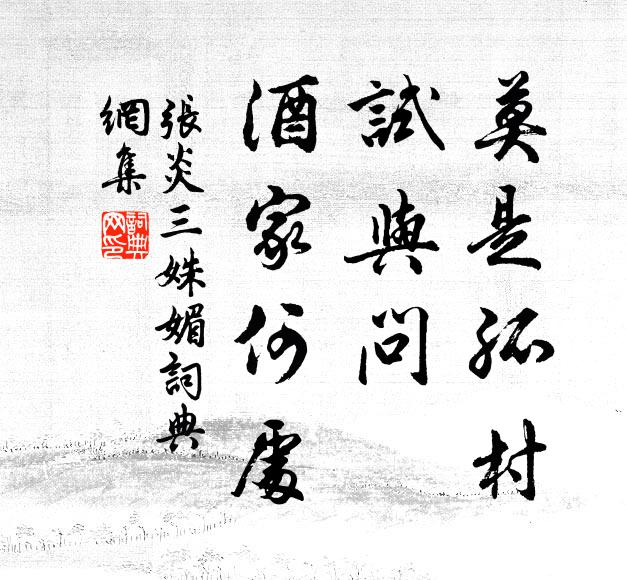 莫是孤村
試與問
酒家何處
張炎三姝媚詞典
網集
詞典
网印